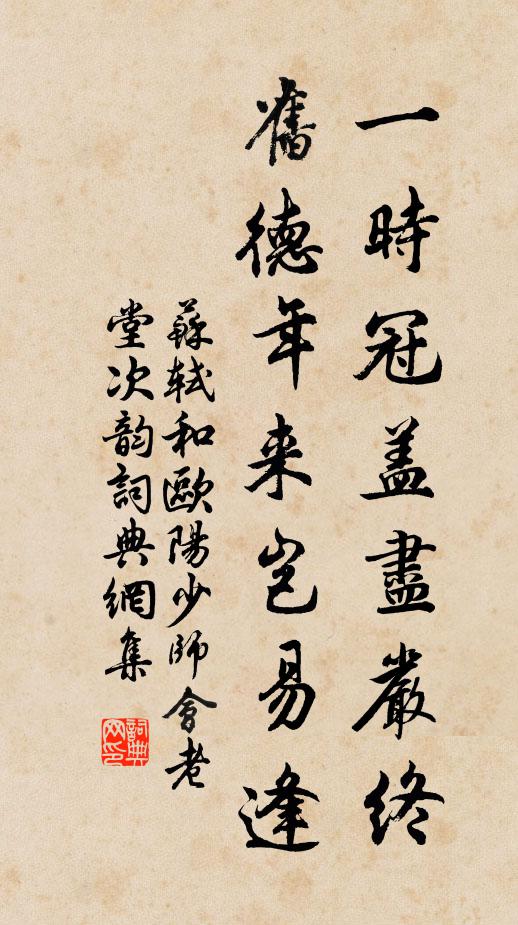 一時冠盖盡嚴終
舊德年来岂易逢
蘇軾和歐陽少師會老
堂次韵詞典網集
詞典
网印